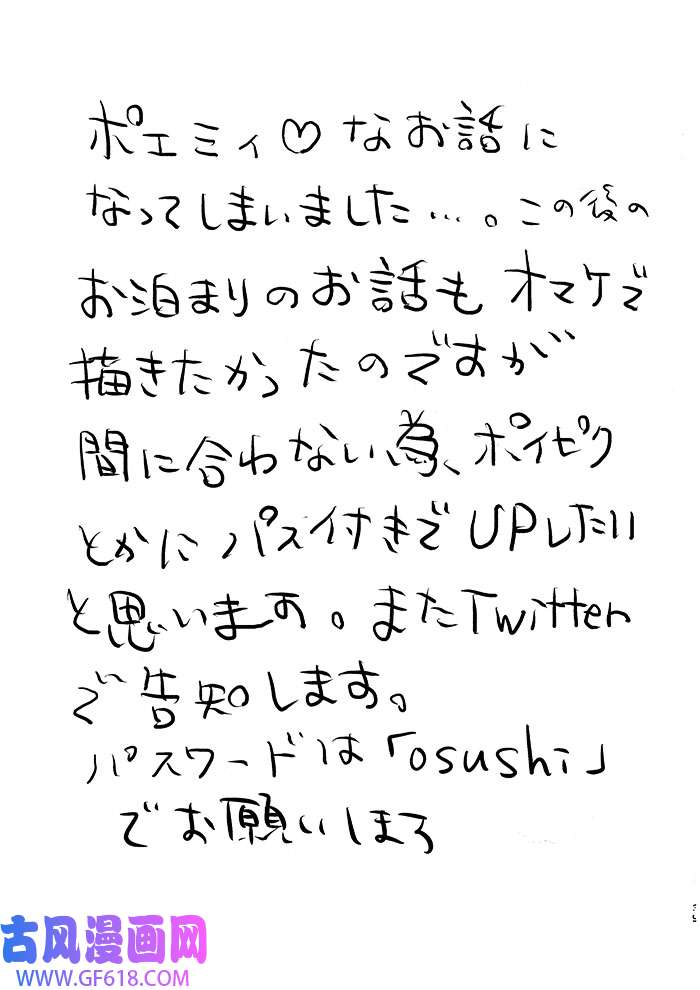 ポエミィ♡なお話に
なってしまいました…。この後の
お泊まりのお話もオマケで
描きたかったのですが
間に合わない為、ポイピク
とかにパス付きでUPしたい
と思います。またTwitter
で告知します。
パスワードは「osushi」
でお願いしまう
古风漫画网
WWW.GF618.COM